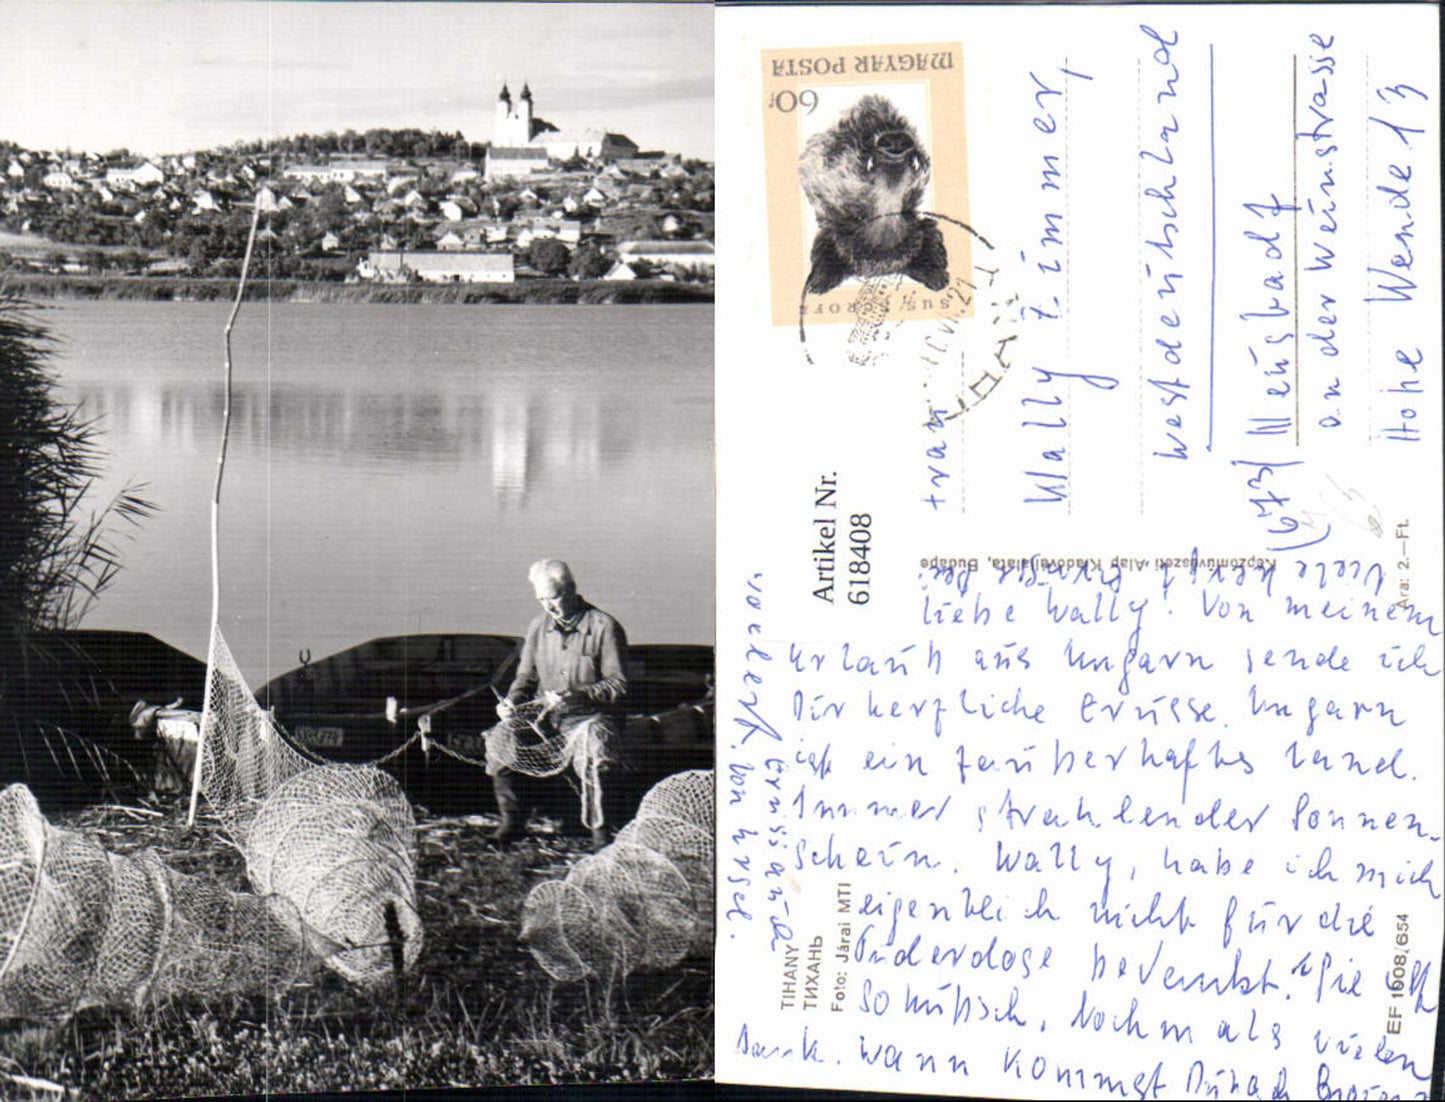 MAGYAR POSTA
60f
SUS SCROFA
Artikel Nr.
618408
Frau
Wally Zimmer,
Westdeutschland
(673) Neustadt
an der Weinstrasse
Hohe Wende 13
Képzőművészeti Alap Kiadóvállalata, Budape
Ára: 2.–Ft.
TIHANY
ТИХАНЬ
Foto: Járai MTI
EF 1008/654
Liebe Wally! Von meinem
Urlaub aus Ungarn sende ich
Dir herzliche Grüsse. Ungarn
ist ein zauberhaftes Land.
Immer strahlender Sonnen-
schein. Wally, habe ich mich
eigentlich nicht für die
Puderdose bedankt. Sie ist
so hübsch. Nochmals vielen
Dank. Wann kommst Du nach
Viele herzl. Grüsse
Grüsse auch
von Ursel.